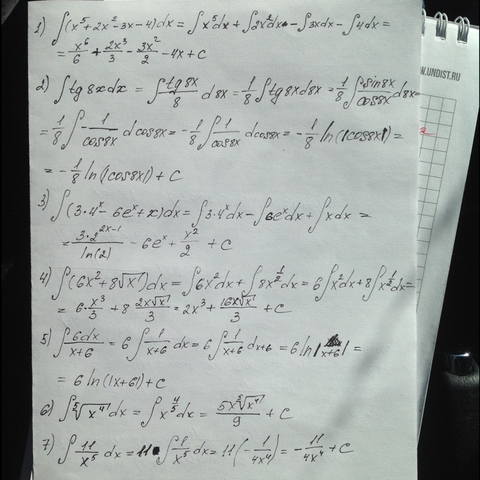 1) ∫(x⁵+2x²-3x-4)dx = ∫x⁵dx + ∫2x²dx - ∫3xdx - ∫4dx =
= x⁶/6 + 2x³/3 - 3x²/2 - 4x + C
WWW.UNDIST.RU
2) ∫tg8xdx = ∫tg8x/8 d8x = 1/8 ∫tg8xd8x = 1/8 ∫sin8x/cos8x d8x =
= 1/8 ∫ - 1/cos8x dcos8x = - 1/8 ∫ 1/cos8x dcos8x = - 1/8 ln(|cos8x|) =
= - 1/8 ln(|cos8x|) + C
3) ∫(3·4ˣ - 6eˣ + x)dx = ∫3·4ˣdx - ∫6eˣdx + ∫xdx =
= 3·2²ˣ⁻¹/ln(2) - 6eˣ + x²/2 + C
4) ∫(6x² + 8√x)dx = ∫6x²dx + ∫8x^(1/2)dx = 6∫x²dx + 8∫x^(1/2)dx =
= 6·x³/3 + 8 2x√x/3 = 2x³ + 16x√x/3 + C
5) ∫6dx/x+6 = 6∫ 1/x+6 dx = 6∫ 1/x+6 dx+6 = 6ln|x+6| =
= 6ln(|x+6|) + C
6) ∫⁵√x⁴ dx = ∫x^(4/5) dx = 5x ⁵√x⁴/9 + C
7) ∫ 11/x⁵ dx = 11·∫ 1/x⁵ dx = 11(- 1/4x⁴) = - 11/4x⁴ + C